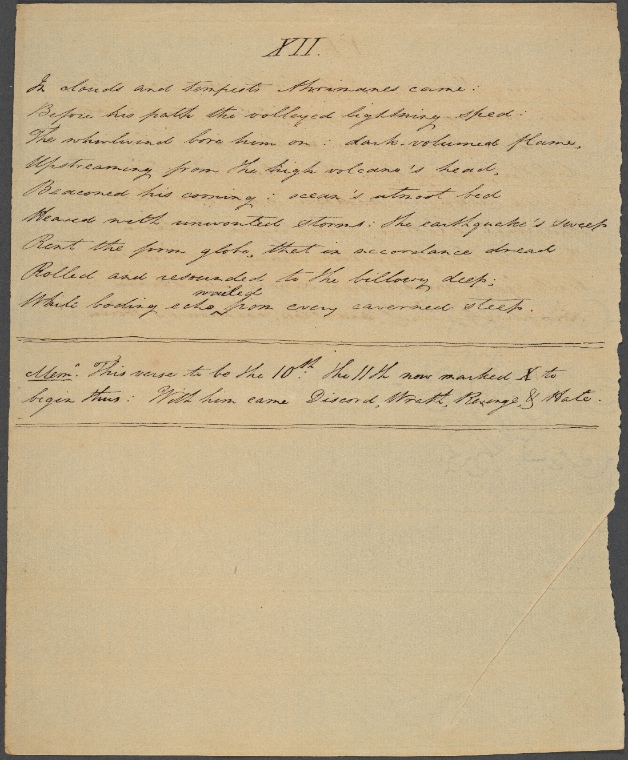 XII.
In clouds and tempests Ahrimanes came:
Before his path the volleyed lightning sped:
The whirlwind bore him on: dark-volumed flame,
Upstreaming from the high volcano's head,
Beaconed his coming: ocean's utmost bed
Heaved with unwonted storms: the earthquake's sweep
Rent the firm globe, that in accordance dread
Rolled and resounded to the billowy deep;
wailed
While boding echo from every caverned steep.
Mem: This verse to be the 10th. the 11th now marked X to
begin thus: With him came Discord, Wrath, Revenge, & Hate.